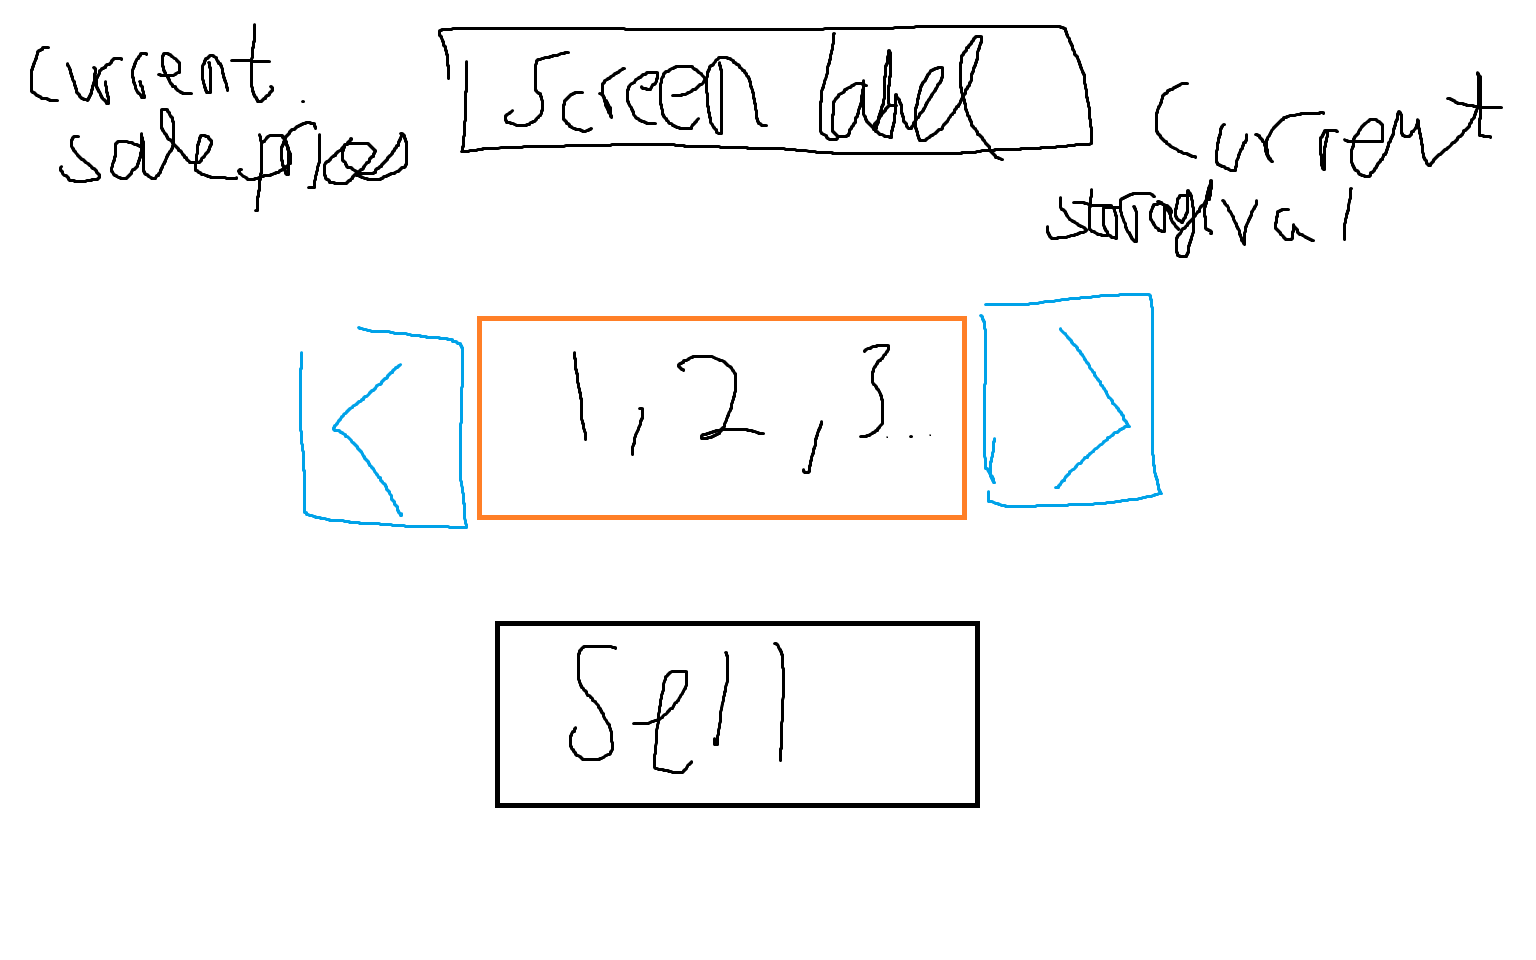 current
sale prices
Screen label
Current
storage val
<
1, 2, 3...
>
Sell